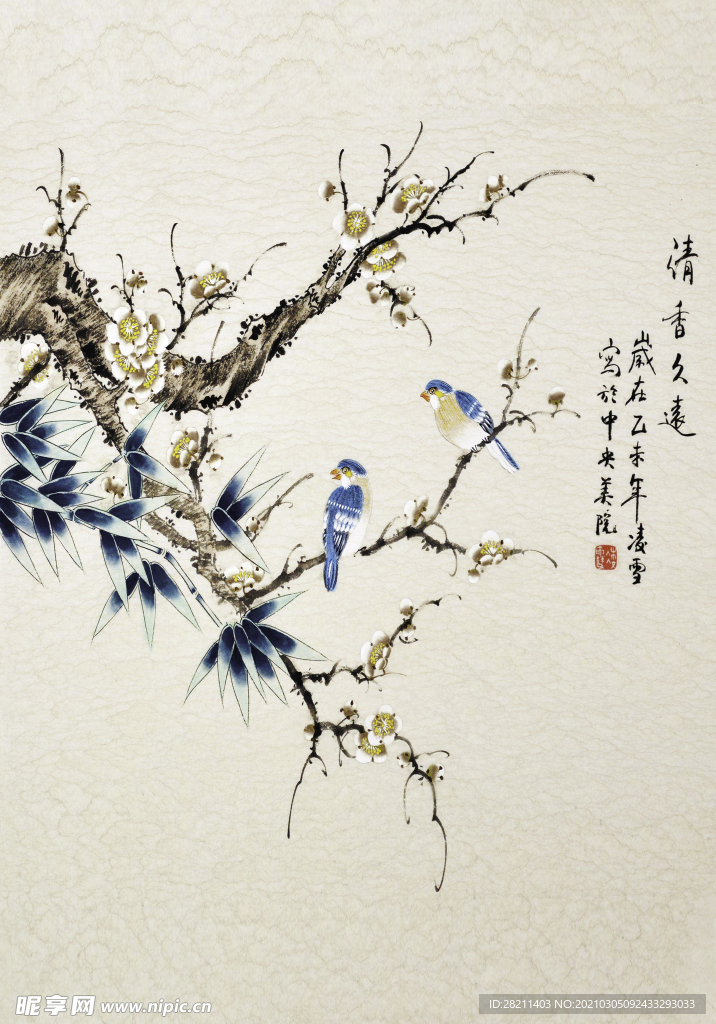 清香久遠
歲在乙未年凌雪
寫於中央美院
昵享网 www.nipic.cn
ID:28211403 NO:20210305092433293033